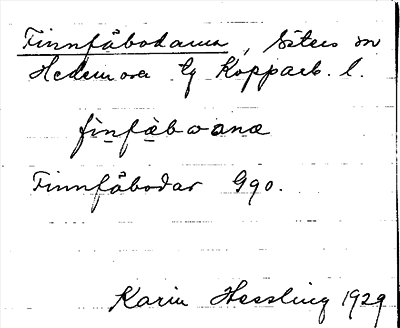 Finnfäbodarna, Säters sn
Hedemora tg Kopparb. l.
finfäboana
Finnfäbodar Ggo.
Karin Hessling 1929